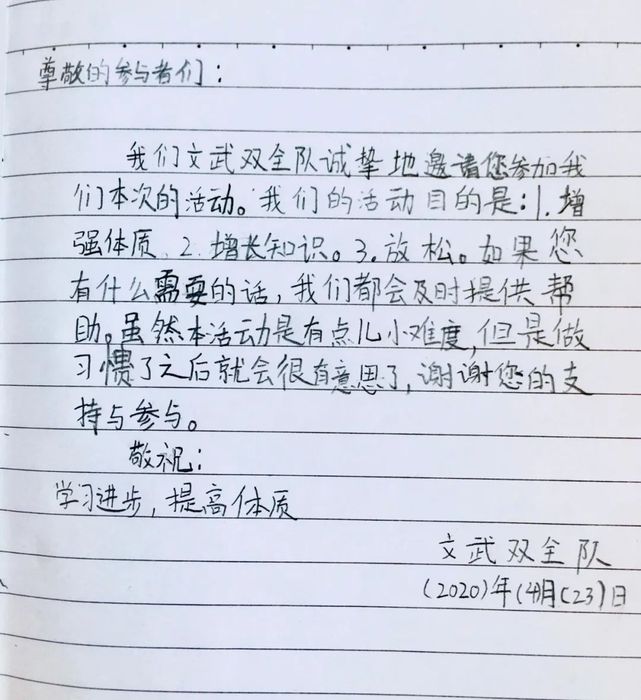 尊敬的参与者们：
我们文武双全队诚挚地邀请您参加我
们本次的活动。我们的活动目的是：1.增
强体质、2.增长知识。3.放松。如果您
有什么需要的话，我们都会及时提供帮
助。虽然本活动是有点儿小难度，但是做
习惯了之后就会很有意思了，谢谢您的支
持与参与。
敬祝：
学习进步，提高体质
文武双全队
（2020）年（4）月（23）日